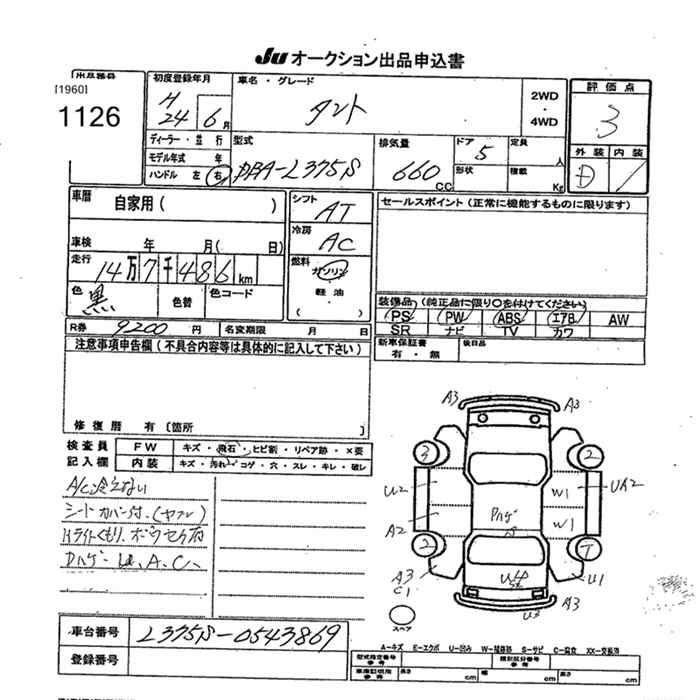 Ju オークション出品申込書
出品番号
[1960]
1126
初度登録年月
H 24 6月
車名・グレード
タント
2WD
・
4WD
評価点
3
外装 内装
D
ディーラー・並行
モデル年式 年
ハンドル 左 右
型式
DBA-L375S
排気量
660
CC
ドア 5
形状
定員 人
積載 Kg
車歴 自家用( )
車検 年 月( 日)
走行 14万7千486km
色 黒 色替 色コード
シフト
AT
冷房
AC
燃料
ガソリン
軽油
( )
セールスポイント(正常に機能するものに限ります)
装備品 (純正品に限り○を付けてください)
PS PW ABS エアB AW
SR ナビ TV カワ
R券 9200 円 名変期限 月 日
新車保証書
有・無
後日品
注意事項申告欄(不具合内容等は具体的に記入して下さい)
修復歴 有〔箇所 〕
検査員
記入欄
FW キズ・飛石・ヒビ割・リペア跡・×要
内装 キズ・汚れ・コゲ・穴・スレ・キレ・破レ
A/C冷えない
シートカバー付.(ヤブレ)
Hライトくもり.
A3 A3
3 2
U2 W1 UA2
A2 W1
2
A3
C1
U1
U3 A3
スペア
A-キズ E-エクボ U-凹み W-補修跡 S-サビ C-腐食 XX-交換済
車台番号 L375S-0543869
登録番号
型式指定番号
参考
類別区分番号
参考
車庫証明用
参考
長さ cm 幅 cm 高さ cm